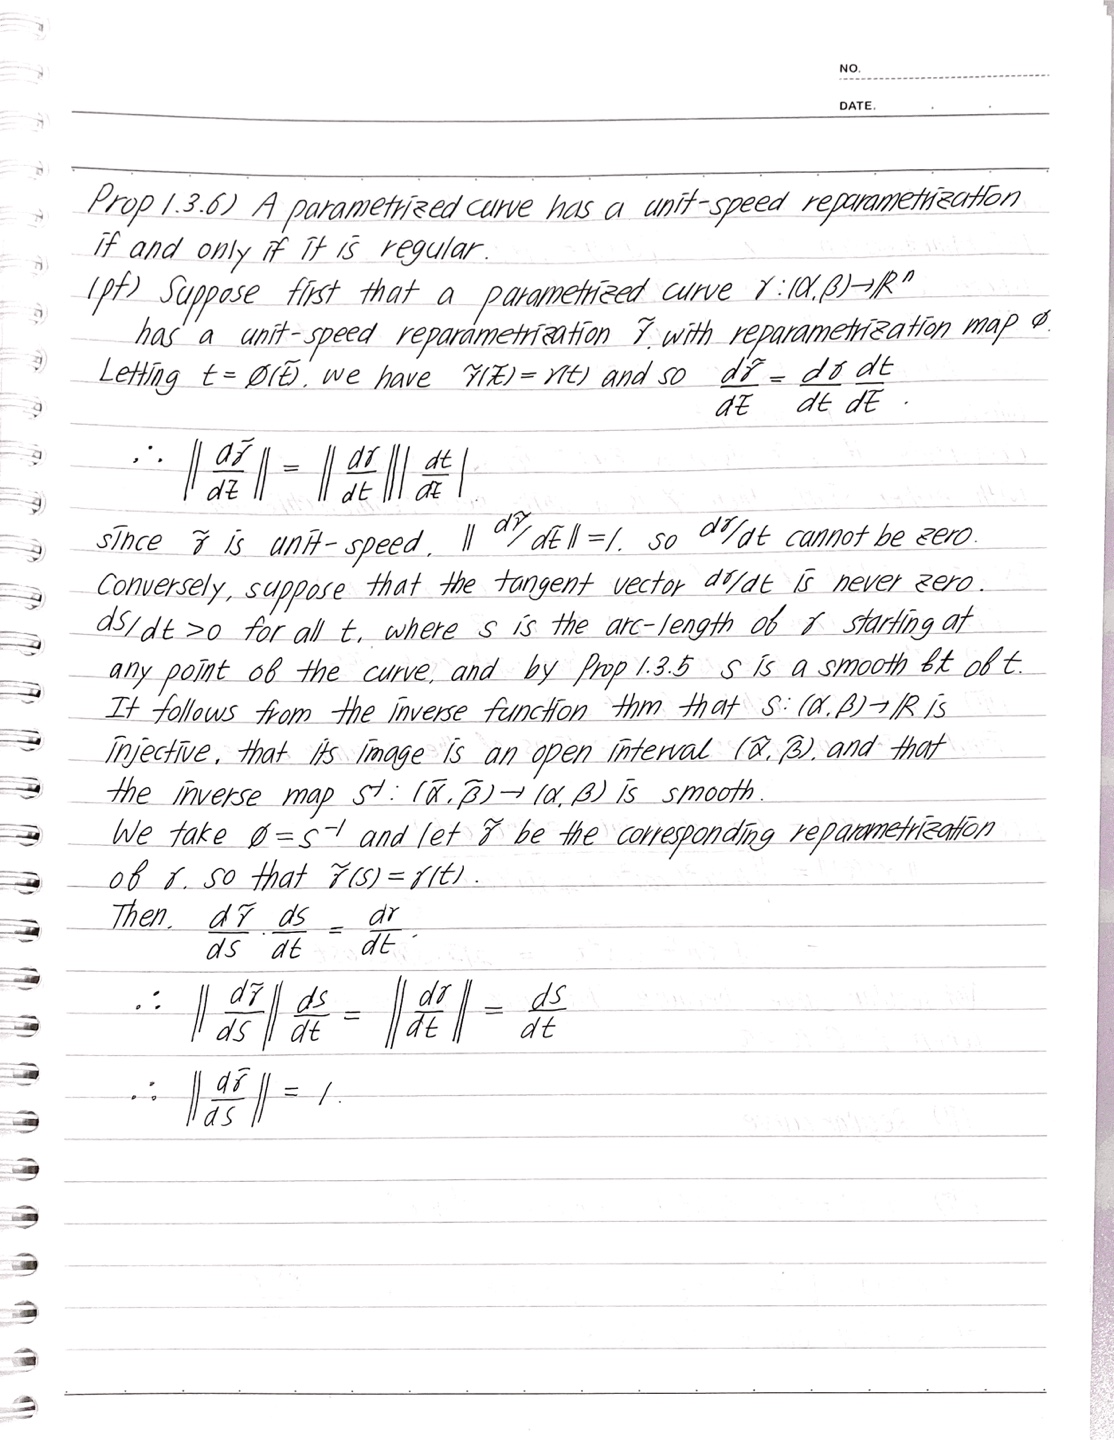 NO.
DATE. . .
Prop 1.3.6) A parametrized curve has a unit-speed reparametrization
if and only if it is regular.
(pf) Suppose first that a parametrized curve γ:(α,β)→ℝⁿ
has a unit-speed reparametrization γ̃, with reparametrization map ø.
Letting t = ø(t̃), we have γ̃(t̃) = γ(t) and so dγ̃/dt̃ = dγ/dt dt/dt̃.
∴ ‖dγ̃/dt̃‖ = ‖dγ/dt‖|dt/dt̃|.
since γ̃ is unit-speed, ‖dγ̃/dt̃‖=1. so dγ/dt cannot be zero.
Conversely, suppose that the tangent vector dγ/dt is never zero.
ds/dt >0 for all t, where s is the arc-length of γ starting at
any point of the curve, and by Prop 1.3.5 s is a smooth ft of t.
It follows from the inverse function thm that s:(α,β)→ℝ is
injective, that its image is an open interval (α̃,β̃), and that
the inverse map s⁻¹:(α̃,β̃)→(α,β) is smooth.
We take ø=s⁻¹ and let γ̃ be the corresponding reparametrization
of γ. so that γ̃(s)=γ(t).
Then, dγ̃/ds · ds/dt = dγ/dt.
∴ ‖dγ̃/ds‖ ds/dt = ‖dγ/dt‖ = ds/dt
∴ ‖dγ̃/ds‖ = 1.